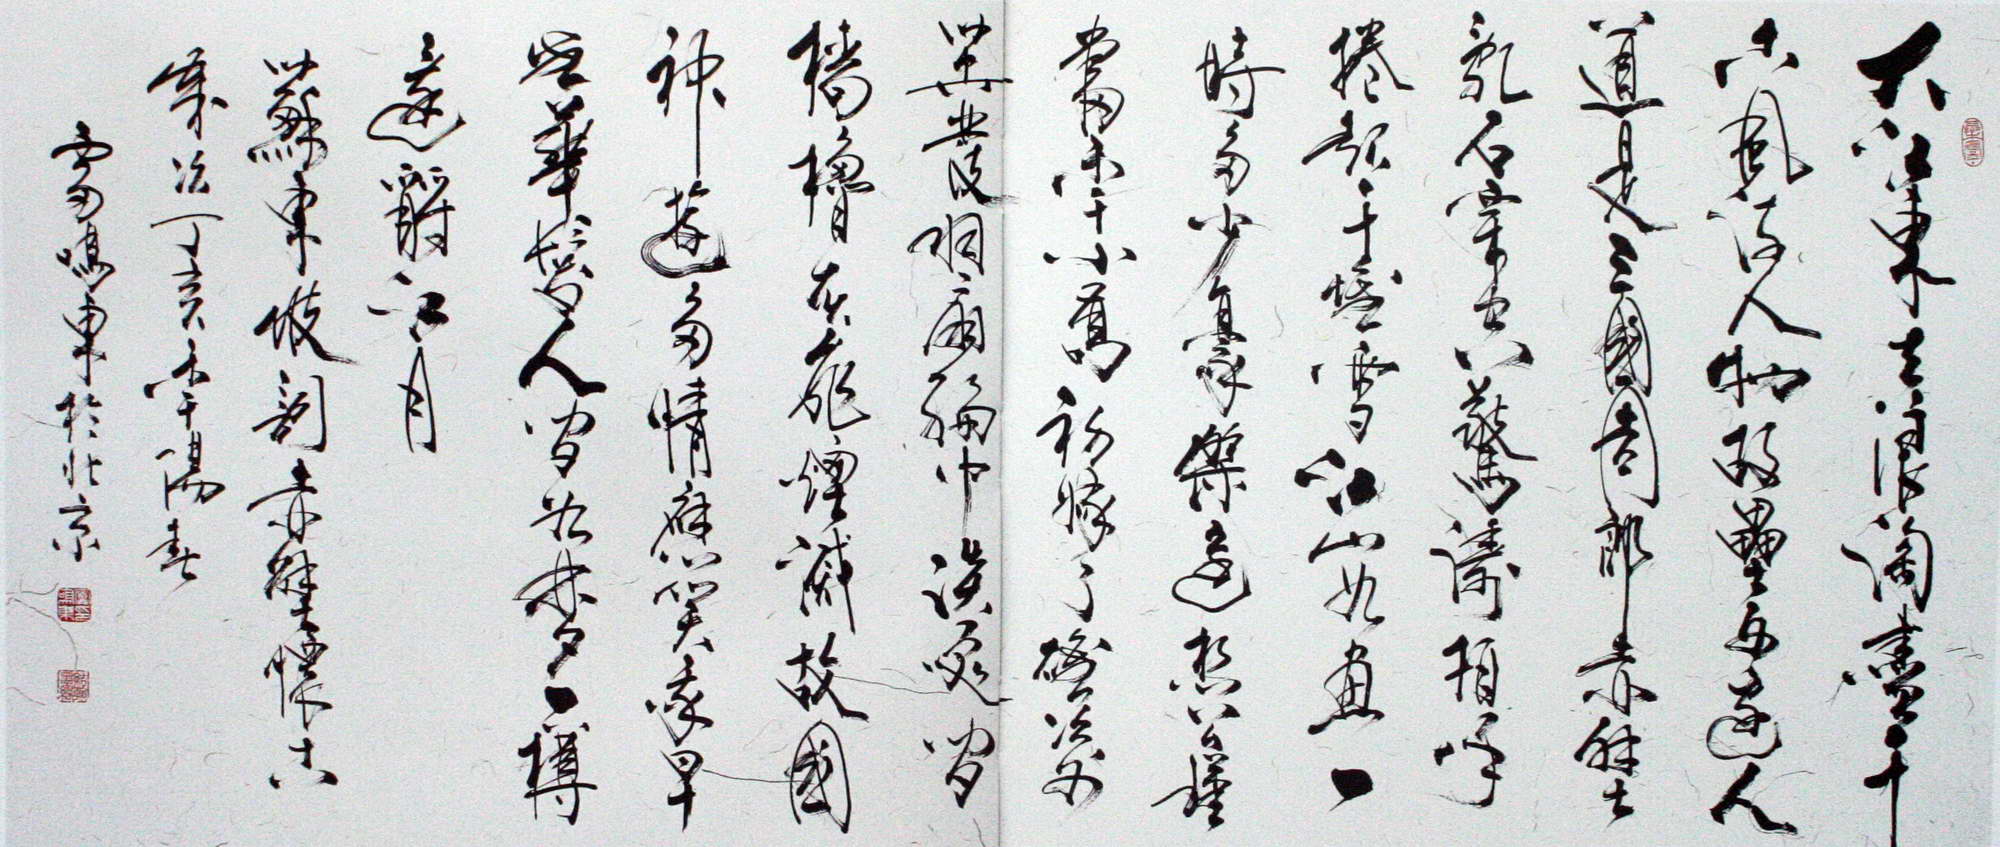 大江東去浪淘盡千
古風流人物故壘西邊人
道是三國周郎赤壁
亂石穿空驚濤拍岸
捲起千堆雪江山如畫一
時多少豪傑遙想公瑾
當年小喬初嫁了雄姿
英發羽扇綸巾談笑間
檣櫓灰飛煙滅故國
神遊多情應笑我早
生華髮人間如夢一樽
還酹江月
蘇東坡詞赤壁懷古
歲次丁亥年陽春
雷鳴東於北京